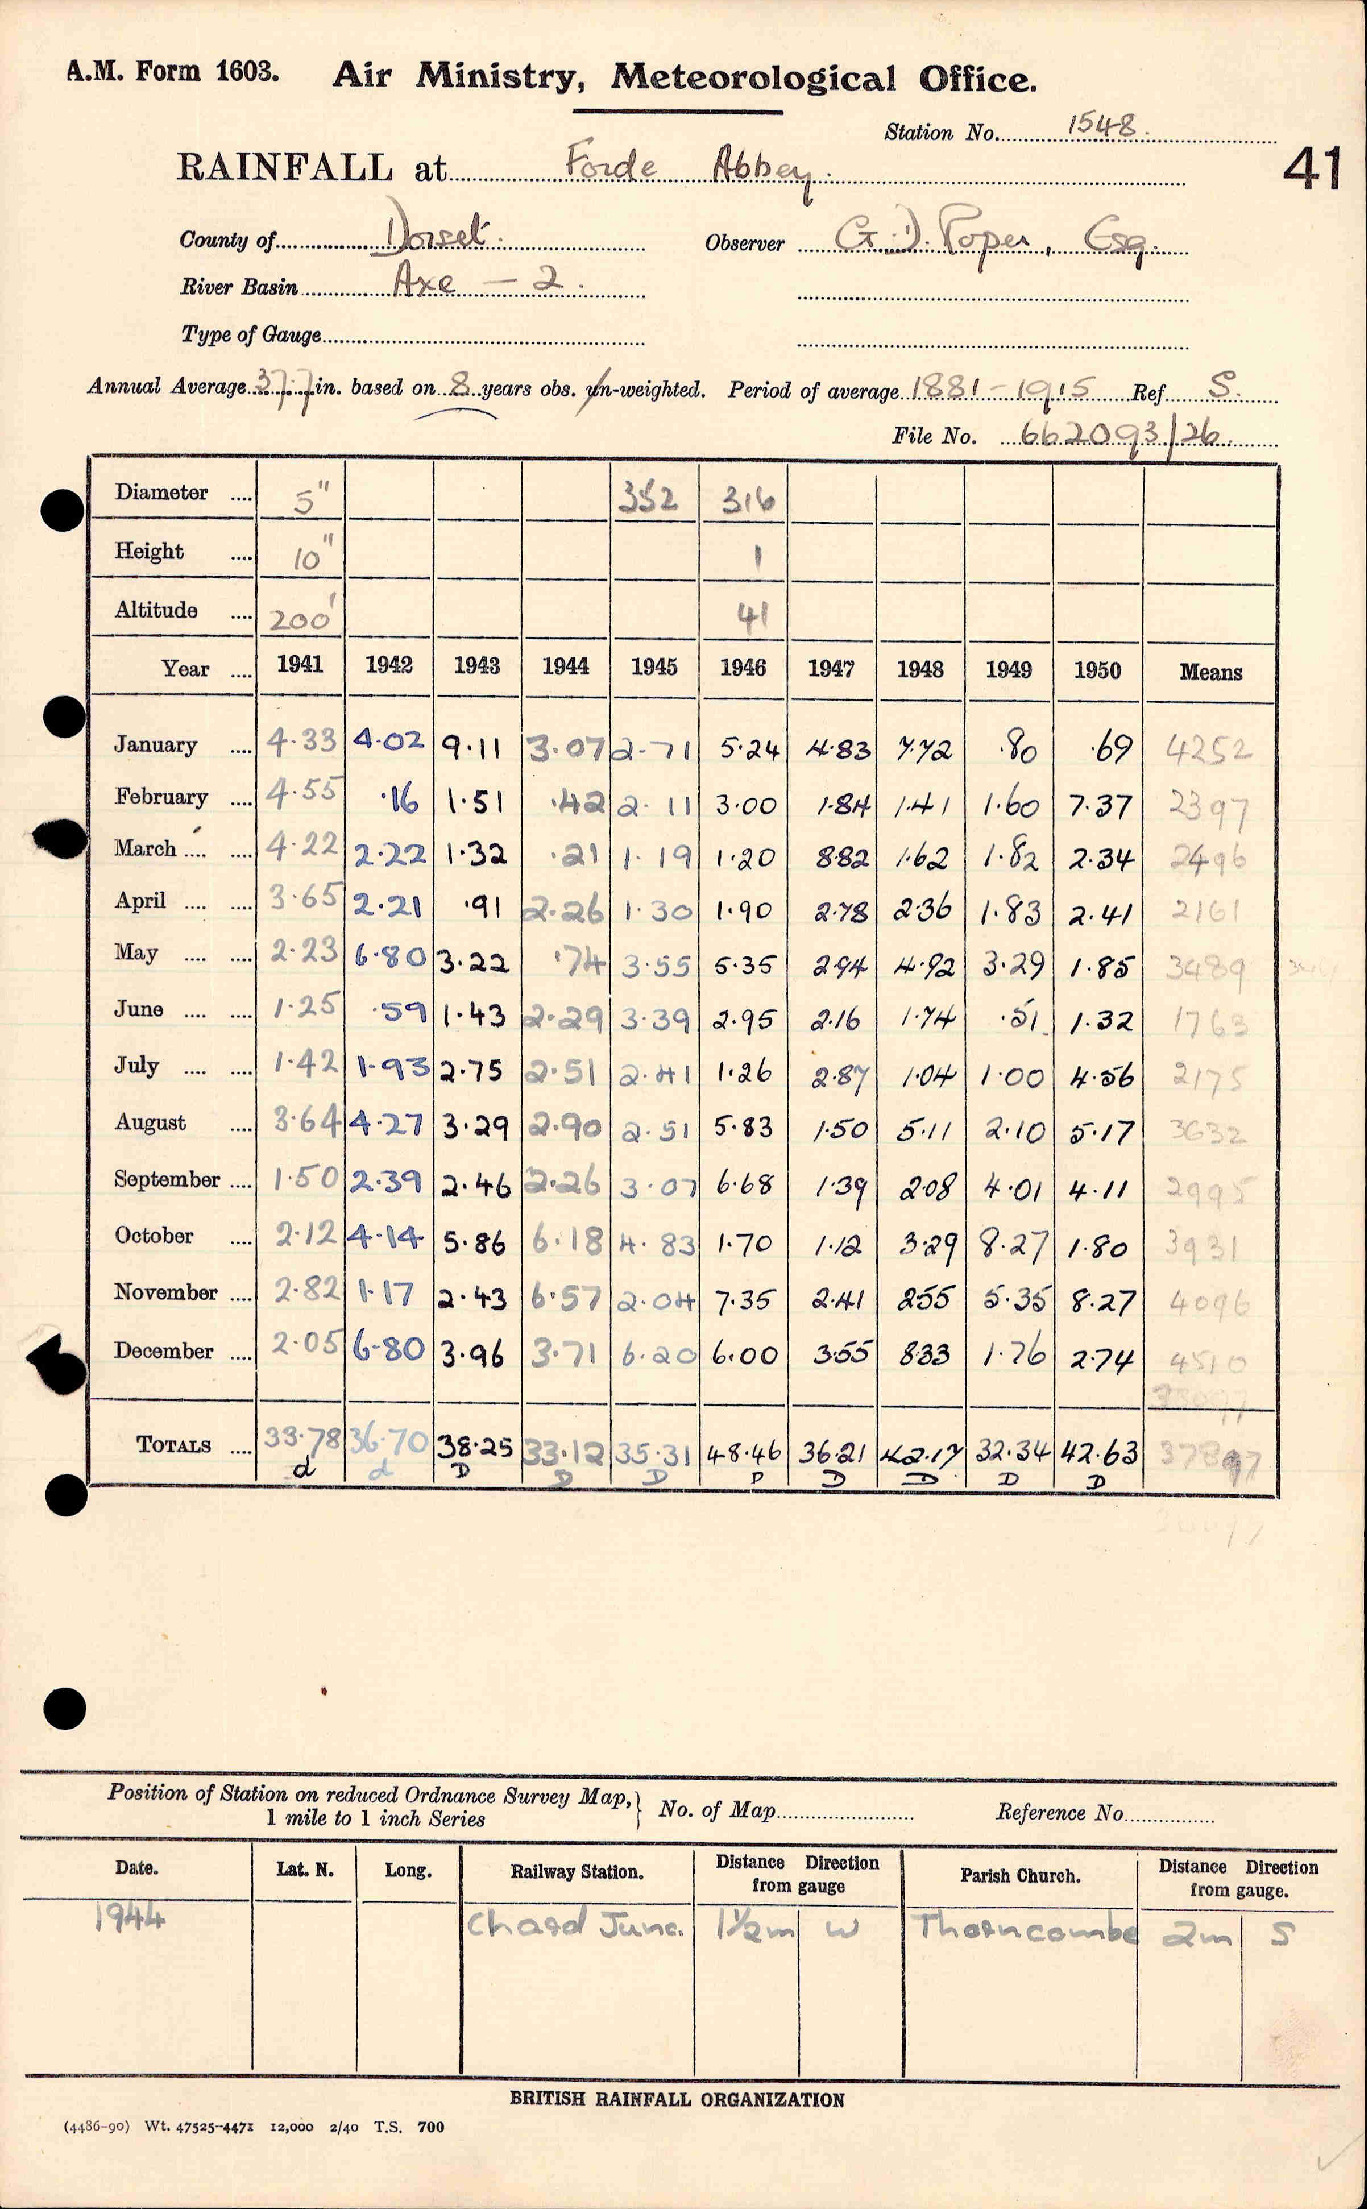 A.M. Form 1603. Air Ministry, Meteorological Office.
Station No. 1548.
41
RAINFALL at Forde Abbey.
County of Dorset. Observer G.D. Roper, Esq.
River Basin Axe - 2.
Type of Gauge
Annual Average 37.7 in. based on 8 years obs. un-weighted. Period of average 1881-1915 Ref S.
File No. 662093/26
Diameter .... 5" 352 316
Height .... 10" 1
Altitude .... 200' 41
Year .... 1941 1942 1943 1944 1945 1946 1947 1948 1949 1950 Means
January .... 4.33 4.02 9.11 3.07 2.71 5.24 4.83 7.72 .80 .69 4252
February .... 4.55 .16 1.51 .42 2.11 3.00 1.84 1.41 1.60 7.37 2397
March .... .... 4.22 2.22 1.32 .21 1.19 1.20 8.82 1.62 1.82 2.34 2496
April .... .... 3.65 2.21 .91 2.26 1.30 1.90 2.78 2.36 1.83 2.41 2161
May .... .... 2.23 6.80 3.22 .74 3.55 5.35 2.94 4.92 3.29 1.85 3489
June .... .... 1.25 .59 1.43 2.29 3.39 2.95 2.16 1.74 .51 1.32 1763
July .... .... 1.42 1.93 2.75 2.51 2.41 1.26 2.87 1.04 1.00 4.56 2175
August .... 3.64 4.27 3.29 2.90 2.51 5.83 1.50 5.11 2.10 5.17 3632
September .... 1.50 2.39 2.46 2.26 3.07 6.68 1.39 2.08 4.01 4.11 2995
October .... 2.12 4.14 5.86 6.18 4.83 1.70 1.12 3.29 8.27 1.80 3931
November .... 2.82 1.17 2.43 6.57 2.04 7.35 2.41 2.55 5.35 8.27 4096
December .... 2.05 6.80 3.96 3.71 6.20 6.00 3.55 8.33 1.76 2.74 4510
TOTALS .... 33.78 36.70 38.25 33.12 35.31 48.46 36.21 42.17 32.34 42.63 37897
d d D D D D D D D D
Position of Station on reduced Ordnance Survey Map,} No. of Map Reference No
1 mile to 1 inch Series
Date. Lat. N. Long. Railway Station. Distance Direction from gauge Parish Church. Distance Direction from gauge.
1944 Chard Junc. 1½m W Thorncombe 2m S
BRITISH RAINFALL ORGANIZATION
(4486-90) Wt. 47525-4471 12,000 2/40 T.S. 700